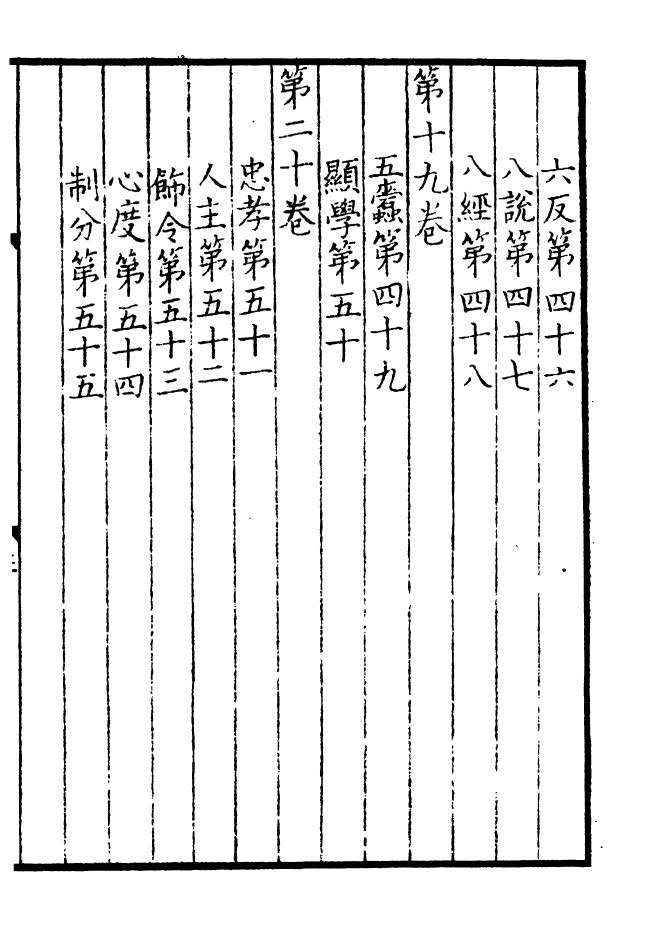 六反第四十六
八說第四十七
八經第四十八
第十九卷
五蠹第四十九
顯學第五十
第二十卷
忠孝第五十一
人主第五十二
飾令第五十三
心度第五十四
制分第五十五